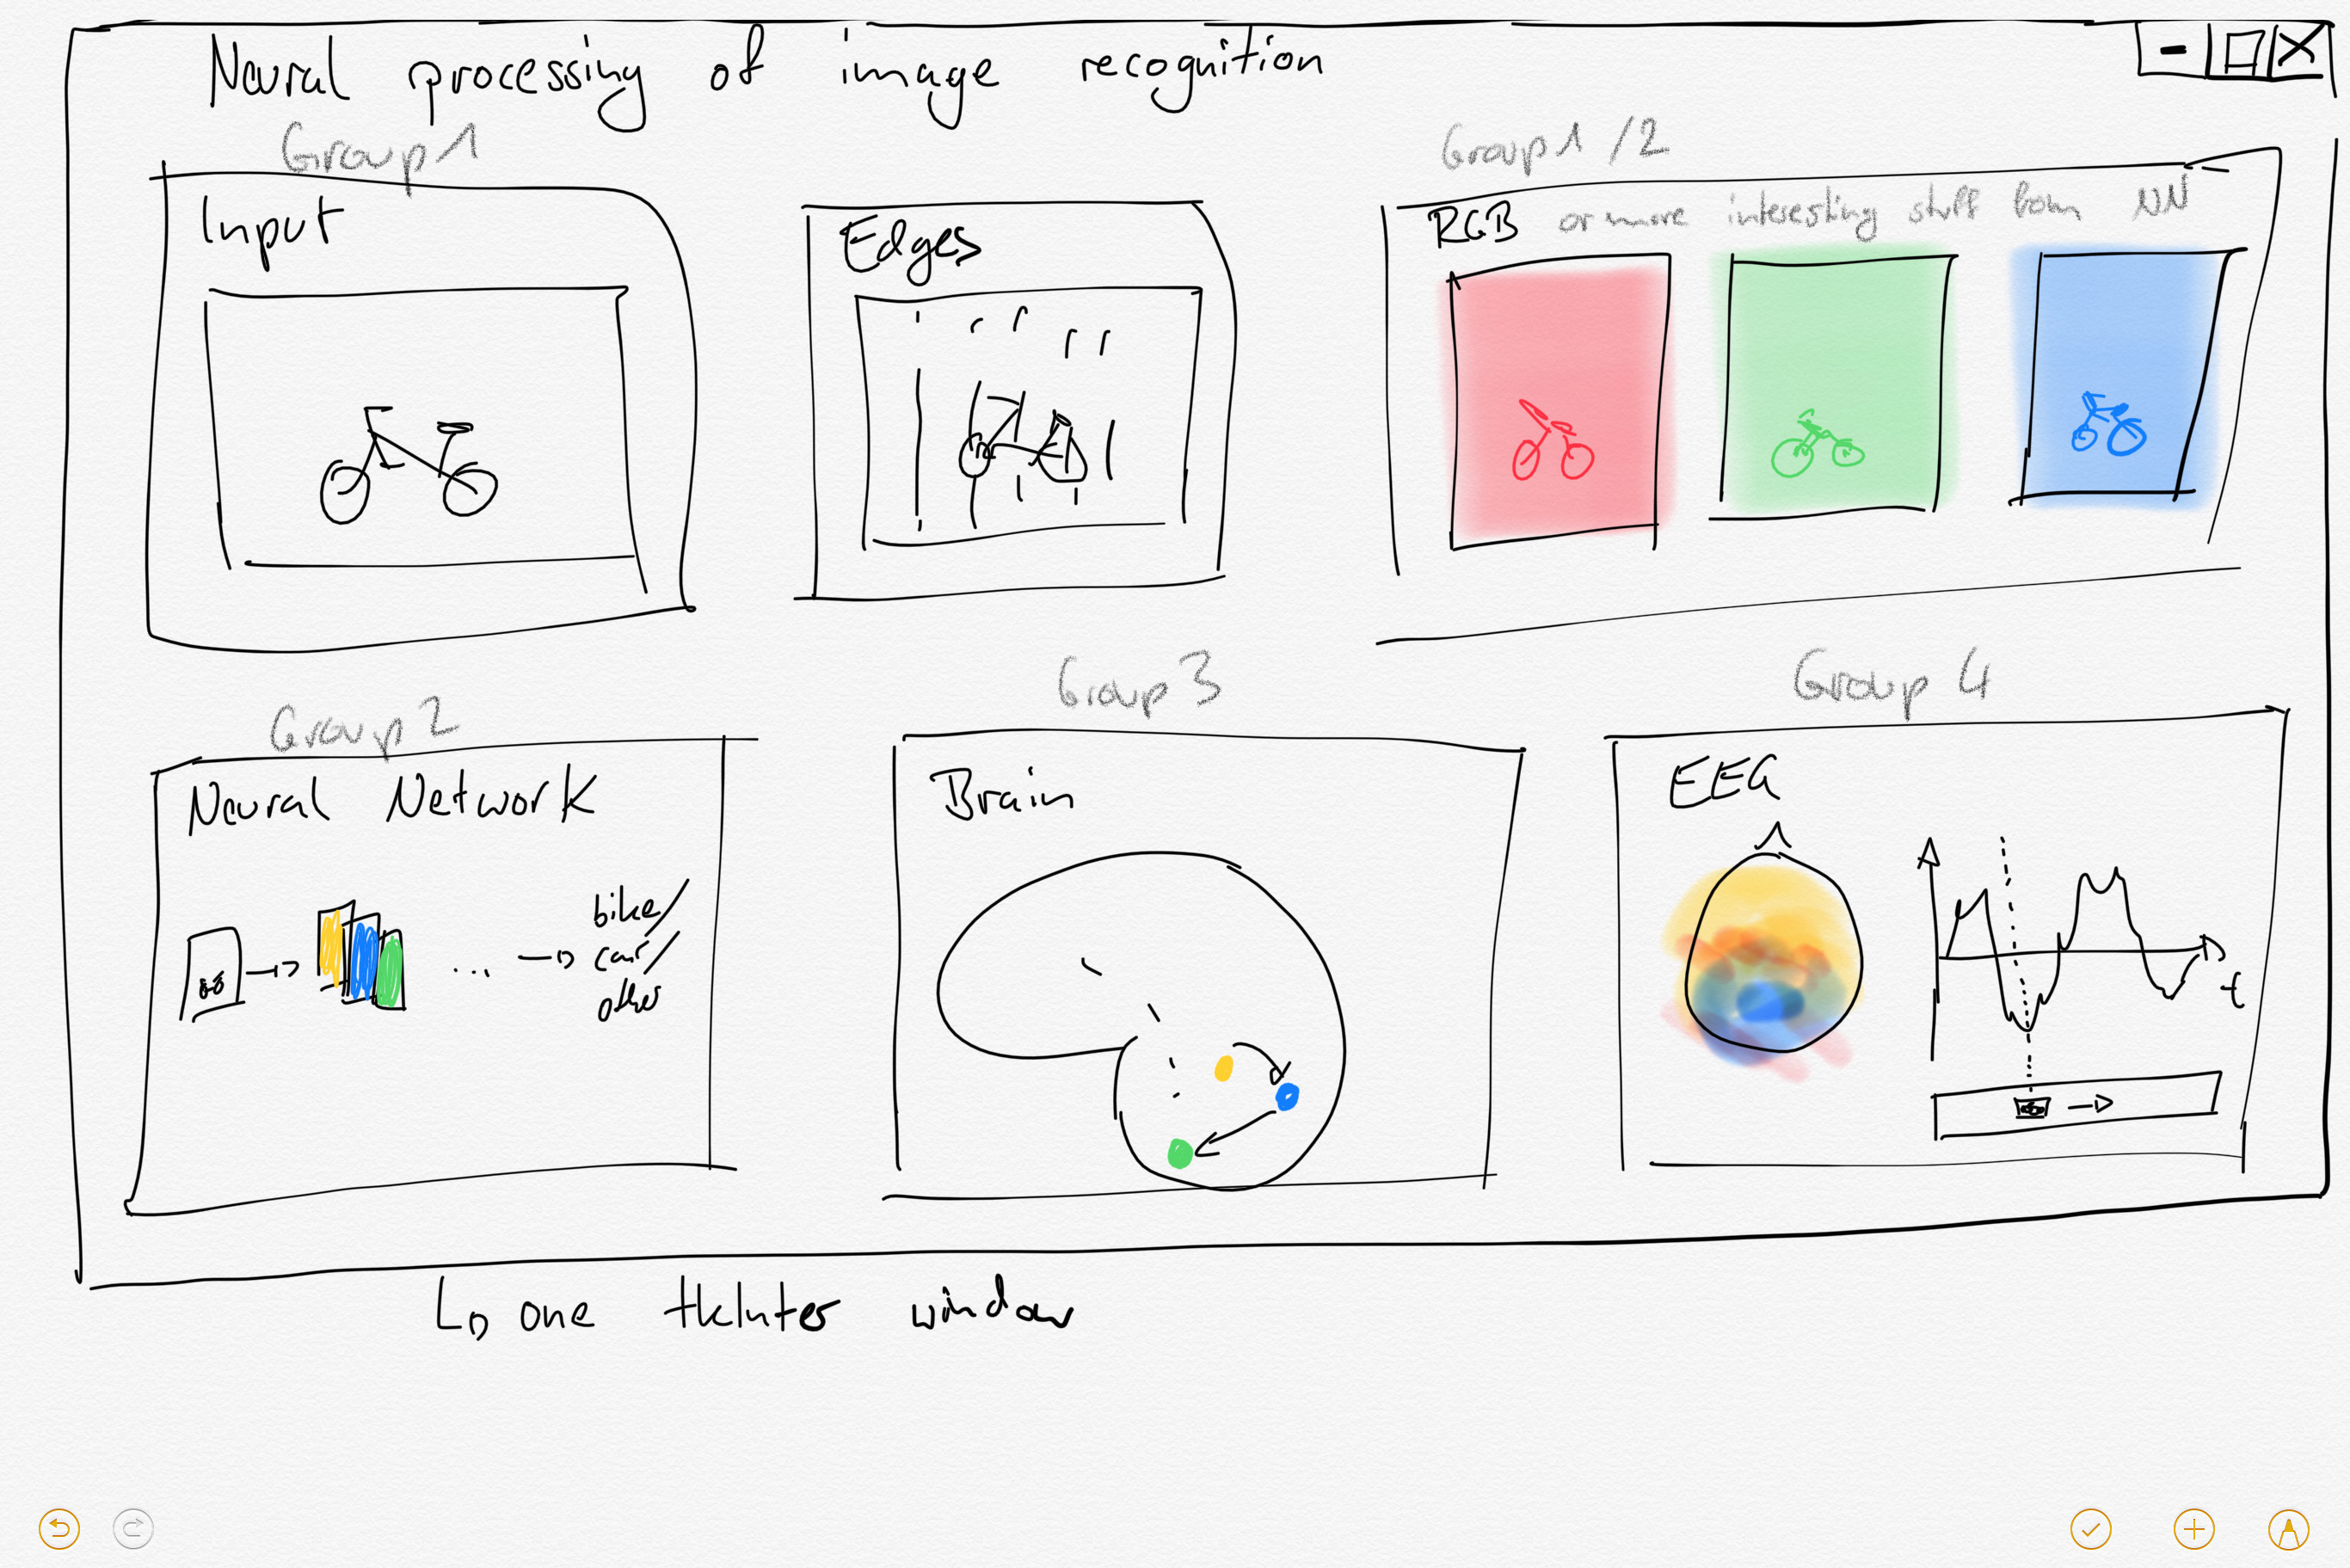 Neural processing of image recognition
Group 1
Input
Edges
Group 1 / 2
RGB or more interesting stuff from NN
Group 2
Neural Network
... bike/
car/
other
Group 3
Brain
Group 4
EEG
t
one tkInter window